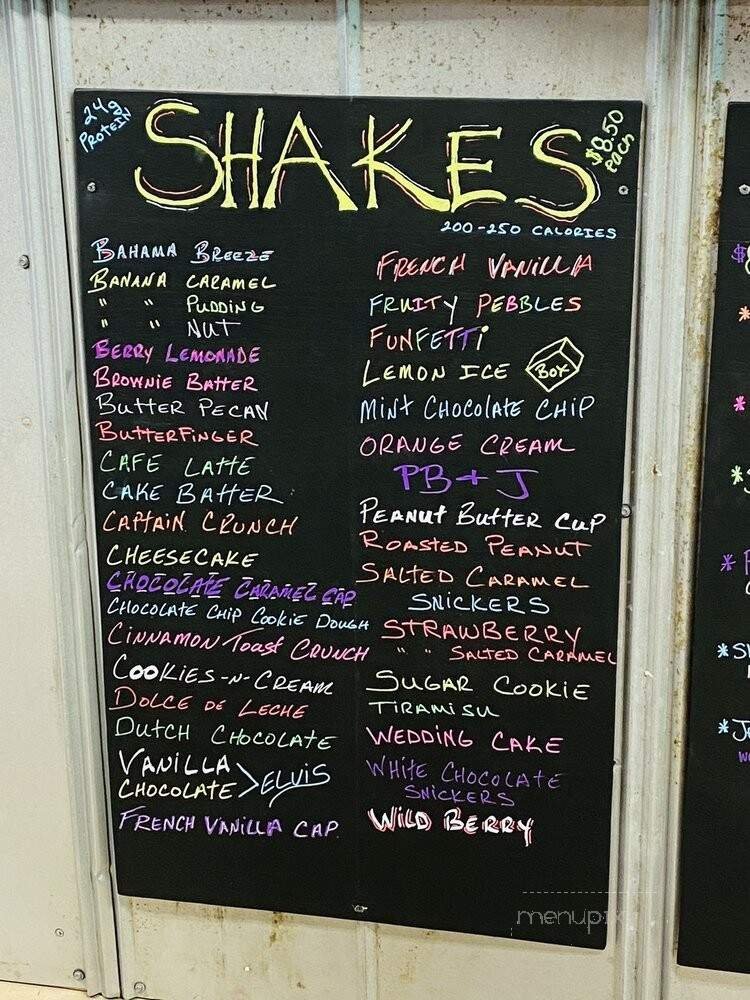 24g
PROTEIN
SHAKES
$8.50
each
200-250 CALORIES
BAHAMA BREEZE
BANANA CARAMEL
" " PUDDING
" " NUT
BERRY LEMONADE
BROWNIE BATTER
BUTTER PECAN
BUTTERFINGER
CAFE LATTE
CAKE BATTER
CAPTAIN CRUNCH
CHEESECAKE
CHOCOLATE CARAMEL CAP
CHOCOLATE CHIP COOKIE DOUGH
CINNAMON TOAST CRUNCH
COOKIES-N-CREAM
DOLCE DE LECHE
DUTCH CHOCOLATE
VANILLA
CHOCOLATE > ELVIS
FRENCH VANILLA CAP.
FRENCH VANILLA
FRUITY PEBBLES
FUNFETTI
LEMON ICE BOX
MINT CHOCOLATE CHIP
ORANGE CREAM
PB + J
PEANUT BUTTER CUP
ROASTED PEANUT
SALTED CARAMEL
SNICKERS
STRAWBERRY
" " SALTED CARAMEL
SUGAR COOKIE
TIRAMISU
WEDDING CAKE
WHITE CHOCOLATE
SNICKERS
WILD BERRY